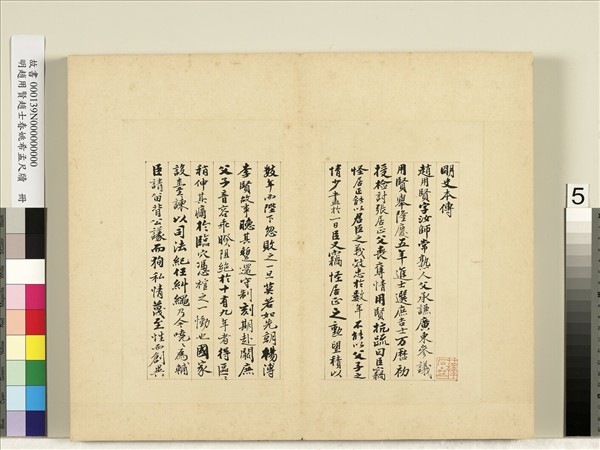 明史本傳
趙用賢字汝師常熟人父承謙廣東參議
用賢舉隆慶五年進士選庶吉士万曆初
授檢討張居正父喪奪情用賢抗疏曰臣竊
怪居正能以君臣之義效忠於數年不能以父子之
情少盡於一日臣又竊怪居正之勳望積以
數年而陛下忽敗之一旦莫若如先朝楊溥
李賢故事聽其暫還守制刻期赴闕庶
父子音容乖睽阻絕於十有九年者得區〻
稍伸其痛於臨穴憑棺之一慟也國家
設臺諫以司法紀任糾繩乃今嘵〻為輔
臣請留背公議而狥私情蔑至性而創異
故書 000139N000000000
明趙用賢趙士春姚希孟尺牘 冊
5